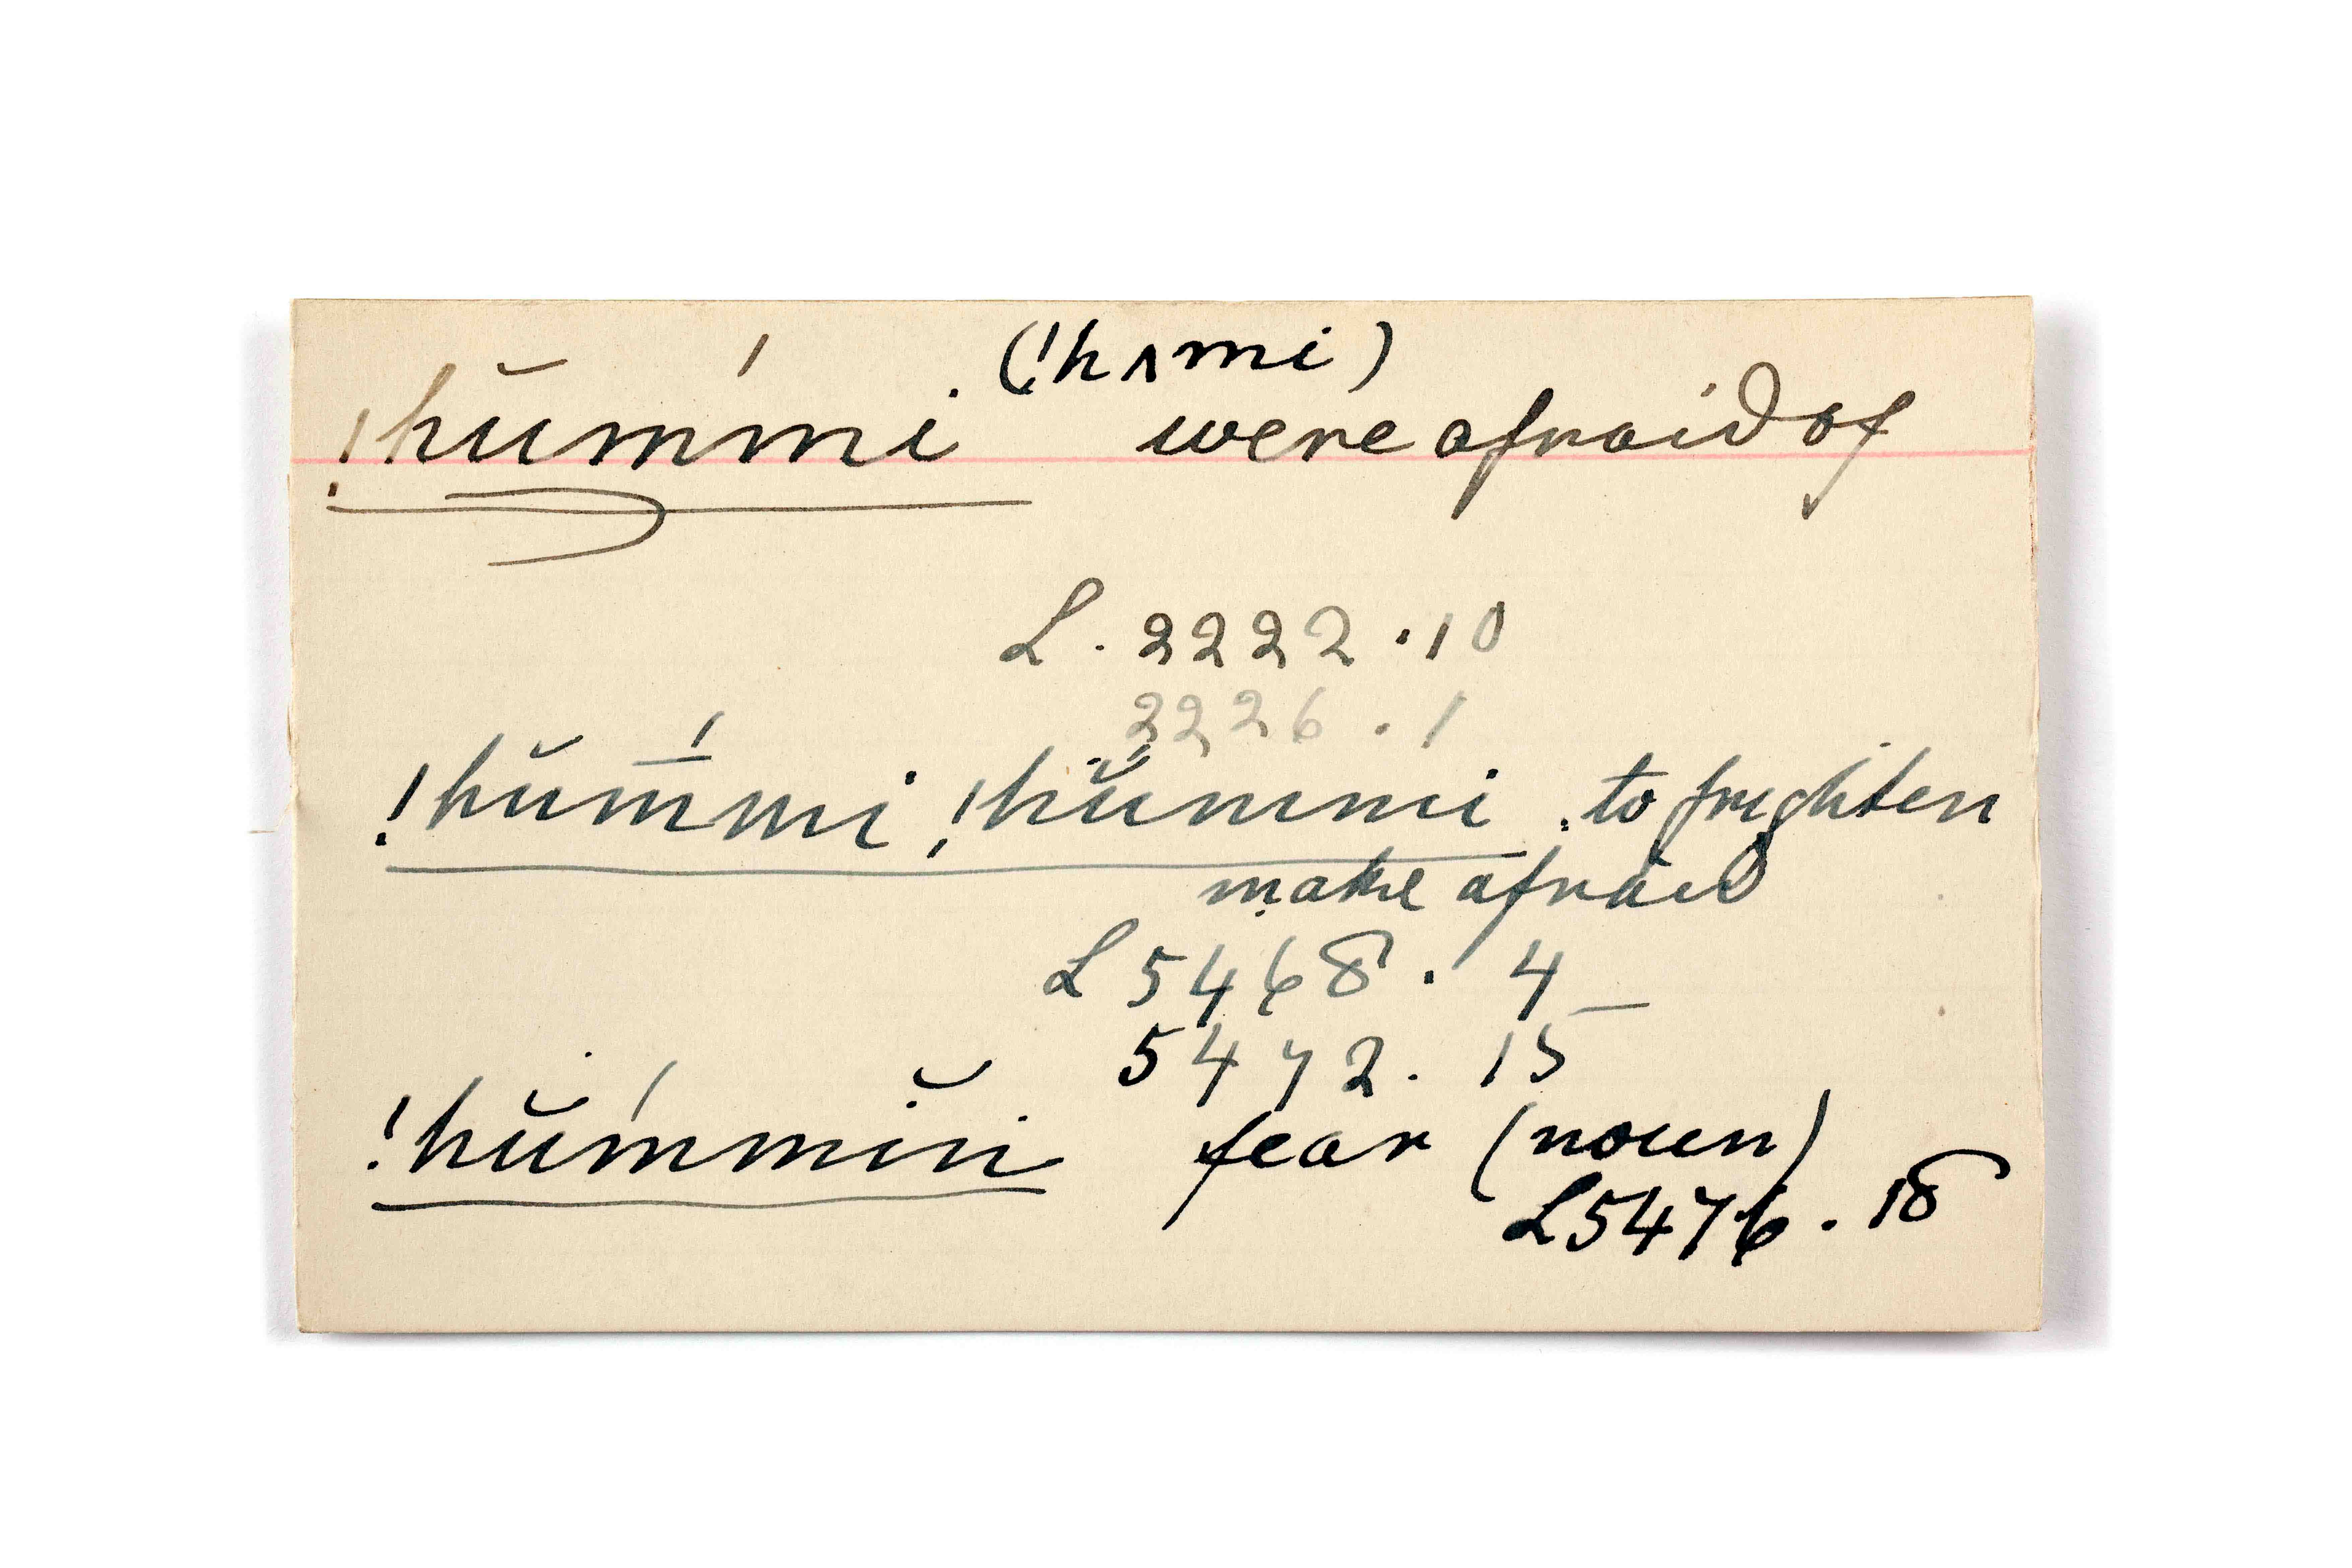 (!hʌmi)
!hŭḿmi were afraid of
L. 2222.10
2226.1
!hŭm̄́mi !hŭ̈mmi to frighten
make afraid
L 5468. 4
5472. 15
!hŭḿmĭn fear (noun)
L5476. 18